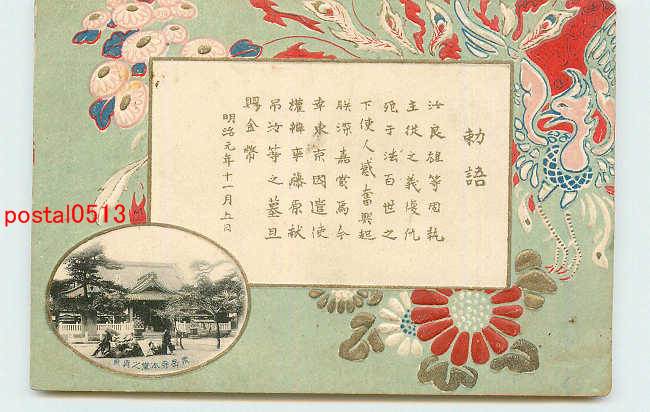 勅語
汝良雄等固執
主從之義復仇
死于法百世之
下使人感奮興起
朕深嘉賞焉今
幸東京因遣使
權辨事藤原献
吊汝等之墓且
賜金幣
明治元年十一月五日
泉岳寺本堂之真景
postal0513